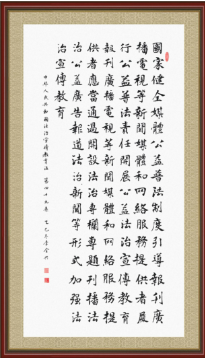 國家健全媒體公益普法制度引導報刊廣
播電視等新聞媒體和网絡服務提供者履
行公益普法責任開展公益法治宣傳教育
報刊廣播電視等新聞媒體和网絡服務提
供者應當通過開設法治專欄專題刊播法
治公益廣告報道法治新聞等形式加強法
治宣傳教育
中华人民共和國法治宣傳教育法 乙巳年